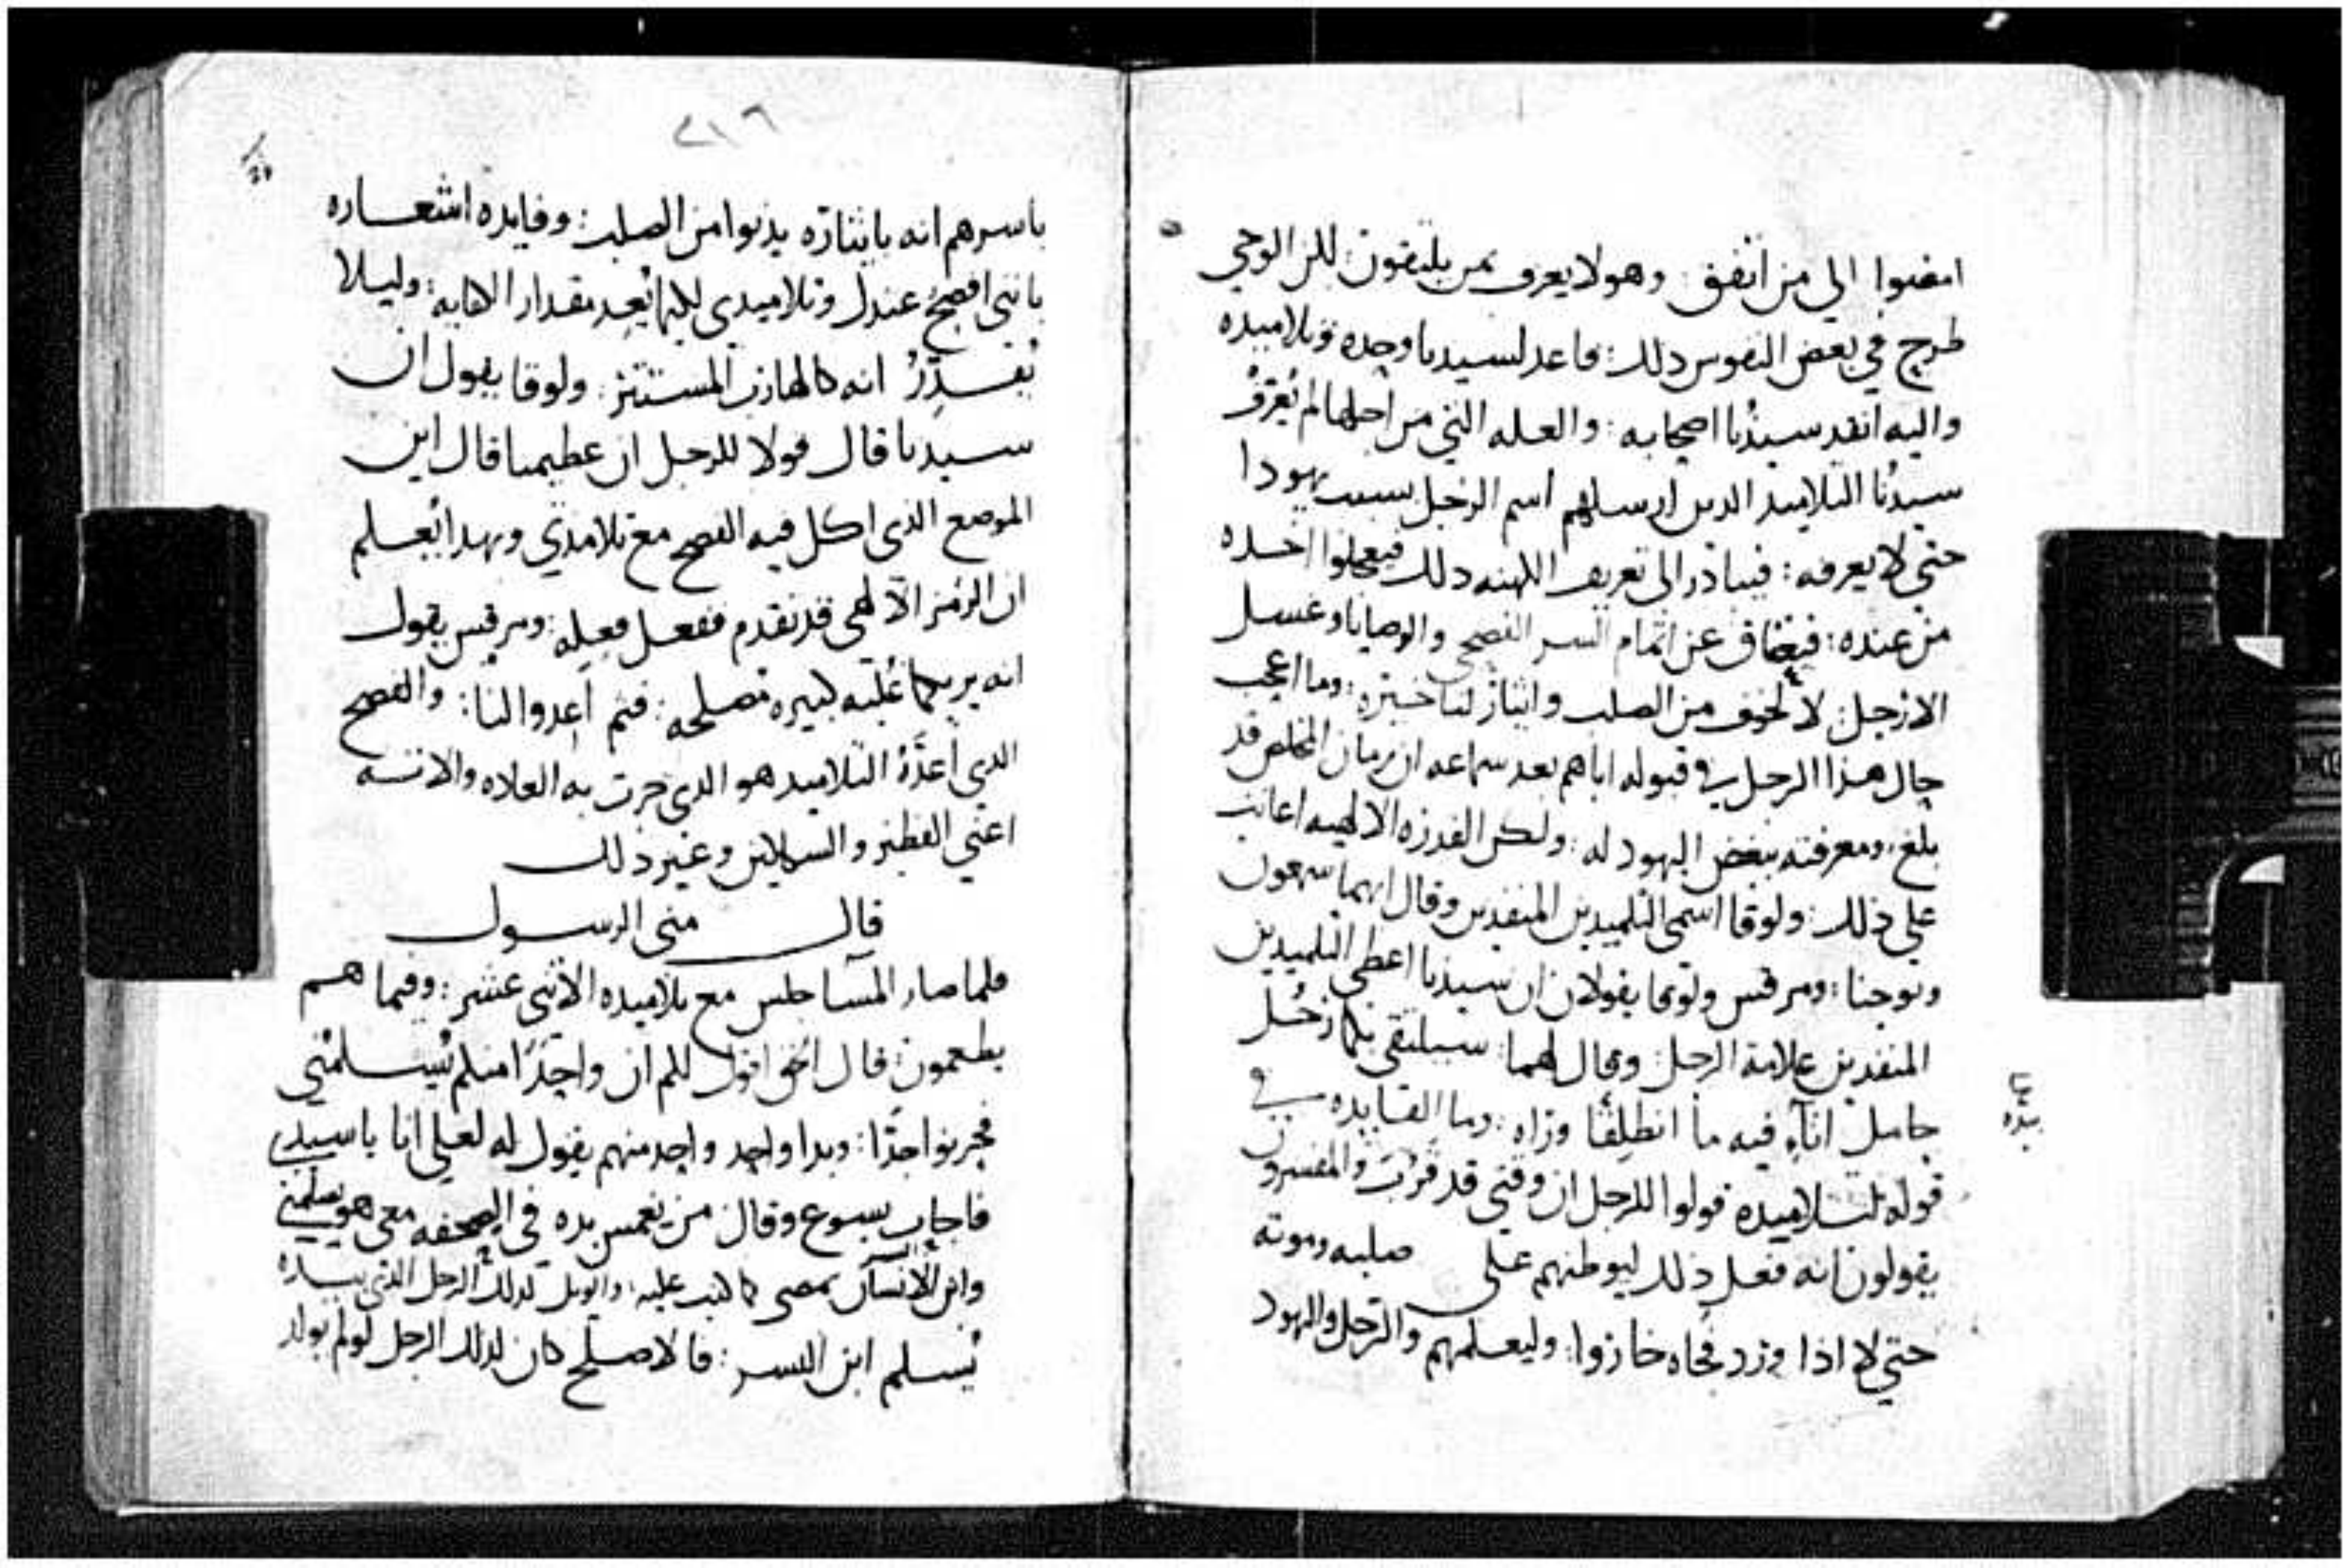 امضوا الي من اتفق : وهو لا يعرف بمن يلتقون : لكن الوحي
طرح في بعض النفوس ذلك : فاعد لسيدنا وحده وتلاميده
واليه انفد سيدُنا اصحابه : والعله التي من اجلها لم يُعرّفُ
سيدُنا التلاميد الدين ارسلهم اسم الرجل بسبب يهودا
حتي لا يعرفه : فيبادر الى تعريف الكهنه دلك فيعجلوا اخده
من عنده : فيعتاق عن اتمام السر الفصحي والوصايا وغسل
الارجل : لا لخوف من الصلب وايثار لتاخيره : وما اعجب
حال هذا الرجل في قبوله اياهم بعد سماعه ان زمان المخلص قد
بلغ : ومعرفته ببغض اليهود له : ولكن القدرة الالهيه اعانت
علي ذلك : ولوقا اسمي التلميدين المنفدين وقال انهما سمعون
ويوحنا : ومرقس ولوقا يقولان ان سيدنا اعطى التلميدين
المنفدين علامة الرجل : وقال لهما : سيلتقي بكما رَجُل
حامل انآءِ فيه مآ انطلقا وراه : وما الفايده في
قوله لتلاميده قولوا للرجل ان وقتي قد قَرُبَ والمفسرون
يقولون انه فعل ذلك ليوطنهم على صلبه وموته
حتي لا اذا ورد فجاه خاروا : وليعلمهم والرجل واليهود
بده
٢١٦
باسرهم انه بايثاره يدنوا من الصلب : وفايده اشعاره
بانني افصحُ عندك وتلاميدي لكيما يُعِد مقدار الكفايه : وليلا
يُقَدِّرُ انه كالهارب المستتر : ولوقا يقول ان
سيدنا قال قولا للرجل ان عظيمنا قال اين
الموضع الذي اكل فيه الفصح مع تلامذي وبهدا يُعلم
ان الرمز الآلهي قد تقدم ففعل فعله : ومرقس يقول
انه يريكما عُليه كبيره مصلحه : فثم اعدوا لنا : والفصح
الدي اعدّهُ التلاميد هو الدي جرت به العاده والانسه
اعني الفطير والسمالين وغير ذلك
قال متى الرسول
فلما صار المسا جلس مع تلاميده الاثني عشر : وفيما هم
يطعمون : قال الحق اقول لكم ان واحِدًا منكم يُسلمُني
فحزنوا جدًا : وبدا واحد واحد منهم يقول له لعلي انا يا سيدي
فاجاب يسوع وقال من يغمس يده في الصحفه معي هو يسلمني
وابن الانسان يمضي كما كتب عليه : والويل لدلك الرجل الذي بيده
يُسلم ابن البشر : فالاصلح كان لدلك الرجل لو لم يولد